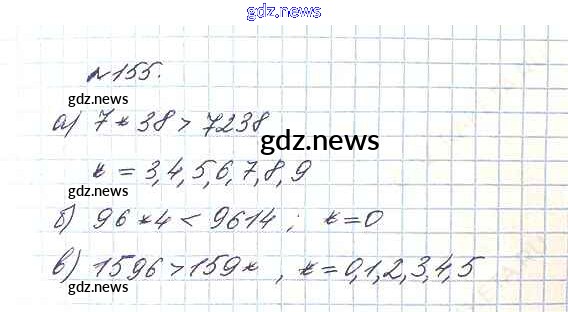 gdz.news
№155.
gdz.news
а) 7*38 > 7238
gdz.news
* = 3,4,5,6,7,8,9
gdz.news
б) 96*4 < 9614; *=0
в) 1596 > 159*, *=0,1,2,3,4,5
gdz.news